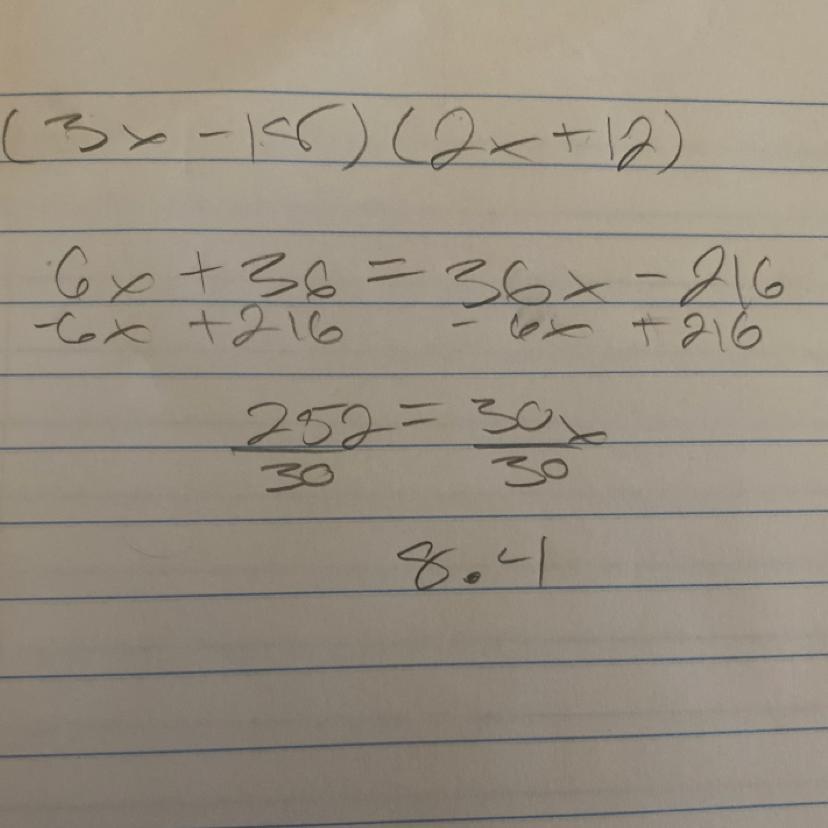 (3x - 18)(2x + 12)
6x + 36 = 36x - 216
-6x + 216 - 6x + 216
252 = 30x
30 30
8.4